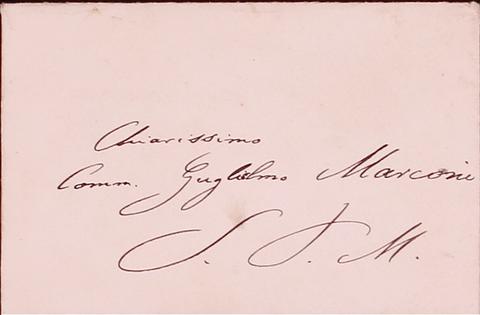 Chiarissimo
Comm. Guglielmo Marconi
S. J. M.